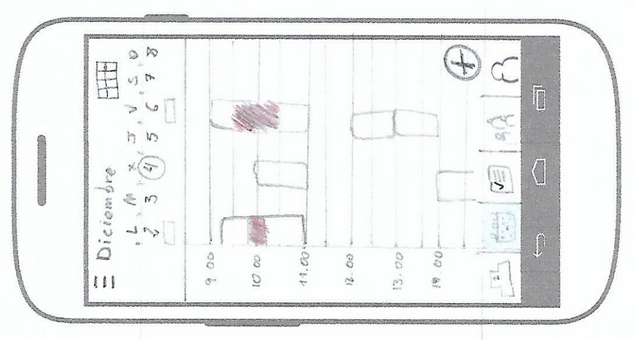 Diciembre
L M X J V S D
2 3 4 5 6 7 8
9.00
10.00
11.00
12.00
13.00
14.00